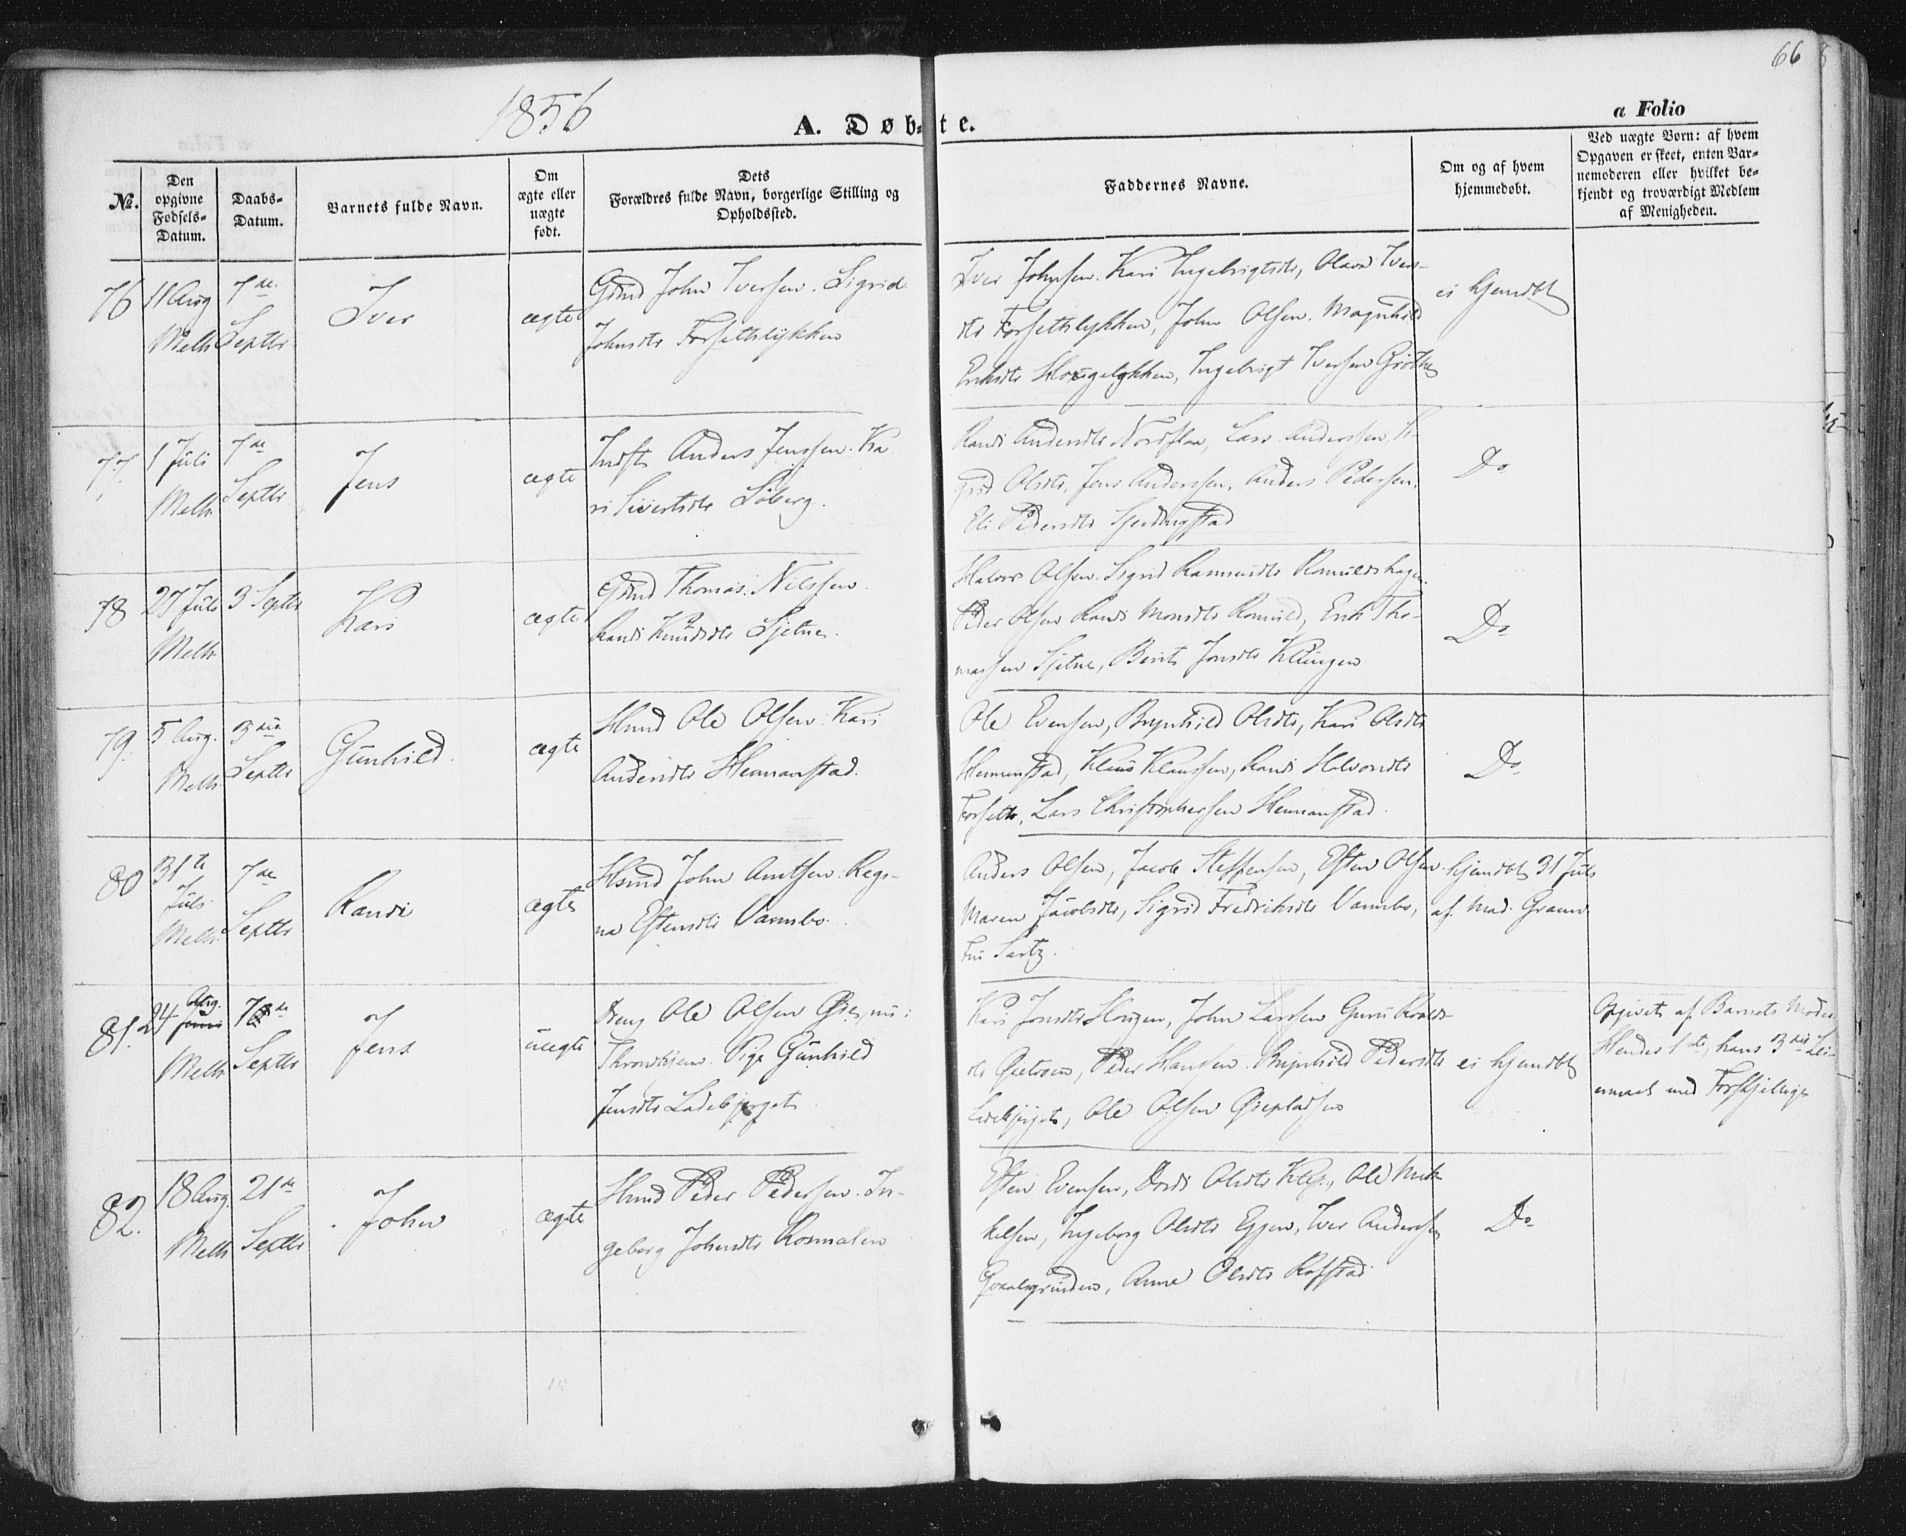 66
1856
A. Døbte.
a Folio
No.
Den opgivne Fødsels-Datum.
Daabs-Datum.
Barnets fulde Navn.
Om ægte eller uægte født.
Dets Forældres fulde Navn, borgerlige Stilling og Opholdssted.
Faddernes Navne.
Om og af hvem hjemmedøbt.
Ved uægte Børn: af hvem Opgaven er skeet, enten Barnemoderen eller hvilket bekjendt og troværdigt Medlem af Menigheden.
76
11 Aug
Melh
7de
Septbr
Iver
ægte
Gmd John Iversen. Sigrid
Johnsdtr Forsethlykken
Iver Johnsen. Kari Ingebrigtsdtr, Olava Ivers-
dtr Forsethslykken, John Olsen. Magnhild
Eriksdtr Hougelykken, Ingebrigt Iversen
ei hjemdbt
77.
1 Juli
Melh
7de
Septbr
Jens
ægte
Indst Anders Jenssen. Ka
ri Sivertsdtr Søberg.
Randi Andersdtr Lars Anderssen, Si-
grid Olsdtr, Jens Anderssen, Anders Pedersen,
Eli Pedersdtr
Do
78
27 Juli
Melh
3 Septbr
Kari
ægte
Gmd Thomas Nilssen.
Randi Knudsdtr Sjetne.
Halvor Olsen. Sigrid
Peder Olsen Randi Monsdtr Romuld, Erik Tho-
massen Sjetne, Berit Jonsdtr Klungen
Do
79.
5 Aug.
Melh
3die
Septbr
Gunhild.
ægte
Hmd Ole Olsen. Kari
Andersdtr Hemmanstad.
Ole Evensen, Brynhild Olsdtr, Kari Olsdtr
Hemmstad, Klaus Klaussen, Randi Halvorsdtr
Forseth, Lars Christophersen Hemmanstad.
Do
80
31te
Juli
Melh
7de
Septbr
Randi
ægte
Hsmd John Arntsen. Regi-
na Estensdtr Vambo.
Anders Olsen, Jacob Steffensen, Esten Olsen
Maren Jacobsdtr, Sigrid Fredriksdtr Vambo,
Fru Sartz.
hjemdbt 31 Juli
af Mad. Gram
81.
24 Aug.
Melh
7de
Septbr
Jens
uægte
Dreng Ole Olsen Øie, nu i
Throndhjem. Pige Gunhild
Jensdtr Ladebjerget.
Kari Jonsdtr Hougen, John Larssen Guru Roalds-
dtr Peder Hansen. Brynhild Pedersdtr
Ladebjerget, Ole Olsen Øiepladsen
ei hjemdbt
Opgivet af Barnets Moder.
Hendes 1ste, hans 3die Lei-
ermaal med Forskjellige
82.
18 Aug.
Melh
21de
Septbr
John
ægte
Hmd Peder Pedersen. In-
geborg Johnsdtr Rosmalen
Esten Evensen, Dordi Olsdtr Klep, Ole Mik-
kelsen, Ingeborg Olsdtr Eggen, Iver Anderssen
Anne Olsdtr Rofstad
Do